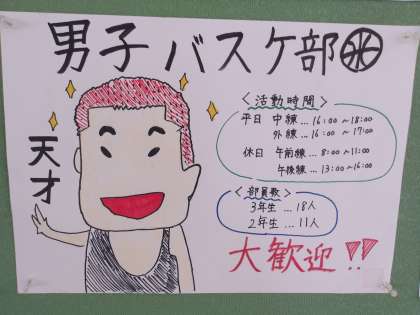 男子バスケ部
天才
<活動時間>
平日 中練…16:00~18:00
外練…16:00~17:00
休日 午前練…8:00~11:00
午後練…13:00~16:00
<部員数>
3年生…18人
2年生…11人
大歓迎!!